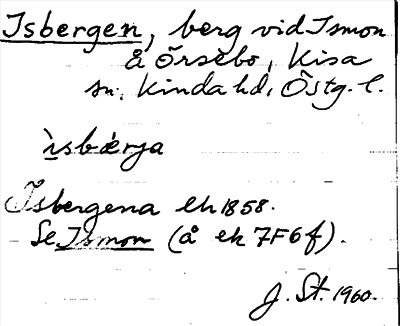 Isbergen, berg vid Ismon
å Örsebo, Kisa
sn, Kinda hd, Östg. l.
ìsbǽrja
Isbergena ek 1858.
Se Ismon (å ek 7F6f).
J. St. 1960.